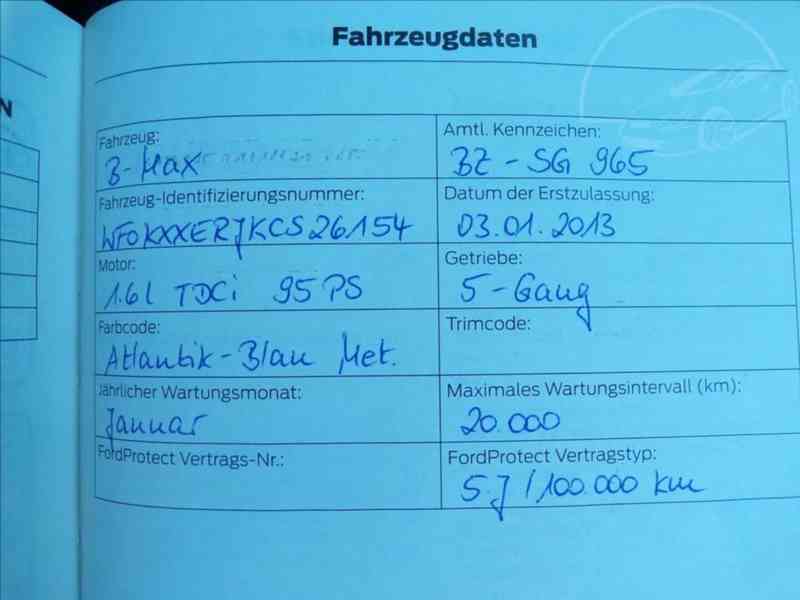 Fahrzeugdaten
N
Fahrzeug:
B-Max
Amtl. Kennzeichen:
BZ - SG 965
Fahrzeug-Identifizierungsnummer:
WF0KXXERJKCS26154
Datum der Erstzulassung:
03.01.2013
Motor:
1.6l TDCi 95 PS
Getriebe:
5-Gang
Farbcode:
Atlantik-Blau Met.
Trimcode:
Jährlicher Wartungsmonat:
Januar
Maximales Wartungsintervall (km):
20.000
FordProtect Vertrags-Nr.:
FordProtect Vertragstyp:
5J/100.000 km